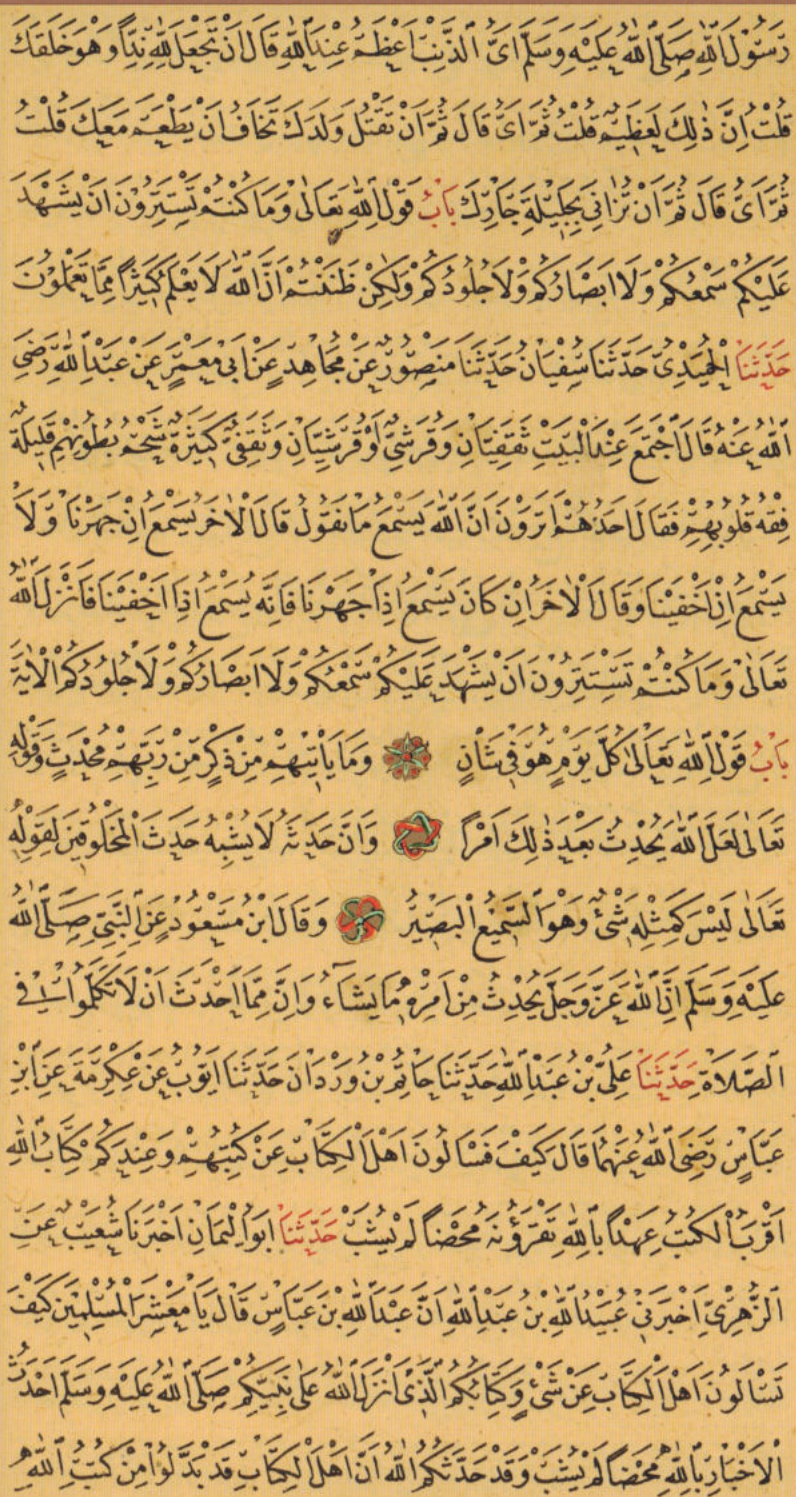 رَسُولَ اللّٰهِ صَلَّى اللّٰهُ عَلَيْهِ وَسَلَّمَ اَىُّ الذَّنْبِ اَعْظَمُ عِنْدَ اللّٰهِ قَالَ اَنْ تَجْعَلَ لِلّٰهِ نِدًّا وَهُوَ خَلَقَكَ
قُلْتُ اِنَّ ذٰلِكَ لَعَظِيمٌ قُلْتُ ثُمَّ اَىُّ قَالَ ثُمَّ اَنْ تَقْتُلَ وَلَدَكَ تَخَافُ اَنْ يَطْعَمَ مَعَكَ قُلْتُ
ثُمَّ اَىُّ قَالَ ثُمَّ اَنْ تُزَانِىَ بِحَلِيلَةِ جَارِكَ بَابُ قَوْلِ اللّٰهِ تَعَالٰى وَمَا كُنْتُمْ تَسْتَتِرُونَ اَنْ يَشْهَدَ
عَلَيْكُمْ سَمْعُكُمْ وَلَا اَبْصَارُكُمْ وَلَا جُلُودُكُمْ وَلٰكِنْ ظَنَنْتُمْ اَنَّ اللّٰهَ لَا يَعْلَمُ كَثِيرًا مِمَّا تَعْمَلُونَ
حَدَّثَنَا الْحُمَيْدِىُّ حَدَّثَنَا سُفْيَانُ حَدَّثَنَا مَنْصُورٌ عَنْ مُجَاهِدٍ عَنْ اَبِى مَعْمَرٍ عَنْ عَبْدِ اللّٰهِ رَضِىَ
اللّٰهُ عَنْهُ قَالَ اجْتَمَعَ عِنْدَ الْبَيْتِ ثَقَفِيَّانِ وَقُرَشِىٌّ اَوْ قُرَشِيَّانِ وَثَقَفِىٌّ كَثِيرَةٌ شَحْمُ بُطُونِهِمْ قَلِيلَةٌ
فِقْهُ قُلُوبِهِمْ فَقَالَ اَحَدُهُمْ اَتَرَوْنَ اَنَّ اللّٰهَ يَسْمَعُ مَا نَقُولُ قَالَ الْاٰخَرُ يَسْمَعُ اِنْ جَهَرْنَا وَلَا
يَسْمَعُ اِنْ اَخْفَيْنَا وَقَالَ الْاٰخَرُ اِنْ كَانَ يَسْمَعُ اِذَا جَهَرْنَا فَاِنَّهُ يَسْمَعُ اِذَا اَخْفَيْنَا فَاَنْزَلَ اللّٰهُ
تَعَالٰى وَمَا كُنْتُمْ تَسْتَتِرُونَ اَنْ يَشْهَدَ عَلَيْكُمْ سَمْعُكُمْ وَلَا اَبْصَارُكُمْ وَلَا جُلُودُكُمْ الْاٰيَةَ
بَابُ قَوْلِ اللّٰهِ تَعَالٰى كُلَّ يَوْمٍ هُوَ فِى شَاْنٍ وَمَا يَاْتِيهِمْ مِنْ ذِكْرٍ مِنْ رَبِّهِمْ مُحْدَثٍ وَقَوْلِهِ
تَعَالٰى لَعَلَّ اللّٰهَ يُحْدِثُ بَعْدَ ذٰلِكَ اَمْرًا وَاَنَّ حَدَثَهُ لَا يُشْبِهُ حَدَثَ الْمَخْلُوقِينَ لِقَوْلِهِ
تَعَالٰى لَيْسَ كَمِثْلِهِ شَىْءٌ وَهُوَ السَّمِيعُ الْبَصِيرُ وَقَالَ ابْنُ مَسْعُودٍ عَنِ النَّبِىِّ صَلَّى اللّٰهُ
عَلَيْهِ وَسَلَّمَ اِنَّ اللّٰهَ عَزَّ وَجَلَّ يُحْدِثُ مِنْ اَمْرِهِ مَا يَشَاءُ وَاِنَّ مِمَّا اَحْدَثَ اَنْ لَا تَكَلَّمُوا فِى
الصَّلَاةِ حَدَّثَنَا عَلِىُّ بْنُ عَبْدِ اللّٰهِ حَدَّثَنَا حَاتِمُ بْنُ وَرْدَانَ حَدَّثَنَا اَيُّوبُ عَنْ عِكْرِمَةَ عَنِ ابْنِ
عَبَّاسٍ رَضِىَ اللّٰهُ عَنْهُمَا قَالَ كَيْفَ تَسْاَلُونَ اَهْلَ الْكِتَابِ عَنْ كُتُبِهِمْ وَعِنْدَكُمْ كِتَابُ اللّٰهِ
اَقْرَبُ الْكُتُبِ عَهْدًا بِاللّٰهِ تَقْرَؤُنَهُ مَحْضًا لَمْ يُشَبْ حَدَّثَنَا اَبُو الْيَمَانِ اَخْبَرَنَا شُعَيْبٌ عَنِ
الزُّهْرِىِّ اَخْبَرَنِى عُبَيْدُ اللّٰهِ بْنُ عَبْدِ اللّٰهِ اَنَّ عَبْدَ اللّٰهِ بْنَ عَبَّاسٍ قَالَ يَا مَعْشَرَ الْمُسْلِمِينَ كَيْفَ
تَسْاَلُونَ اَهْلَ الْكِتَابِ عَنْ شَىْءٍ وَكِتَابُكُمُ الَّذِى اَنْزَلَ اللّٰهُ عَلٰى نَبِيِّكُمْ صَلَّى اللّٰهُ عَلَيْهِ وَسَلَّمَ اَحْدَثُ
الْاَخْبَارِ بِاللّٰهِ مَحْضًا لَمْ يُشَبْ وَقَدْ حَدَّثَكُمُ اللّٰهُ اَنَّ اَهْلَ الْكِتَابِ قَدْ بَدَّلُوا مِنْ كُتُبِ اللّٰهِ